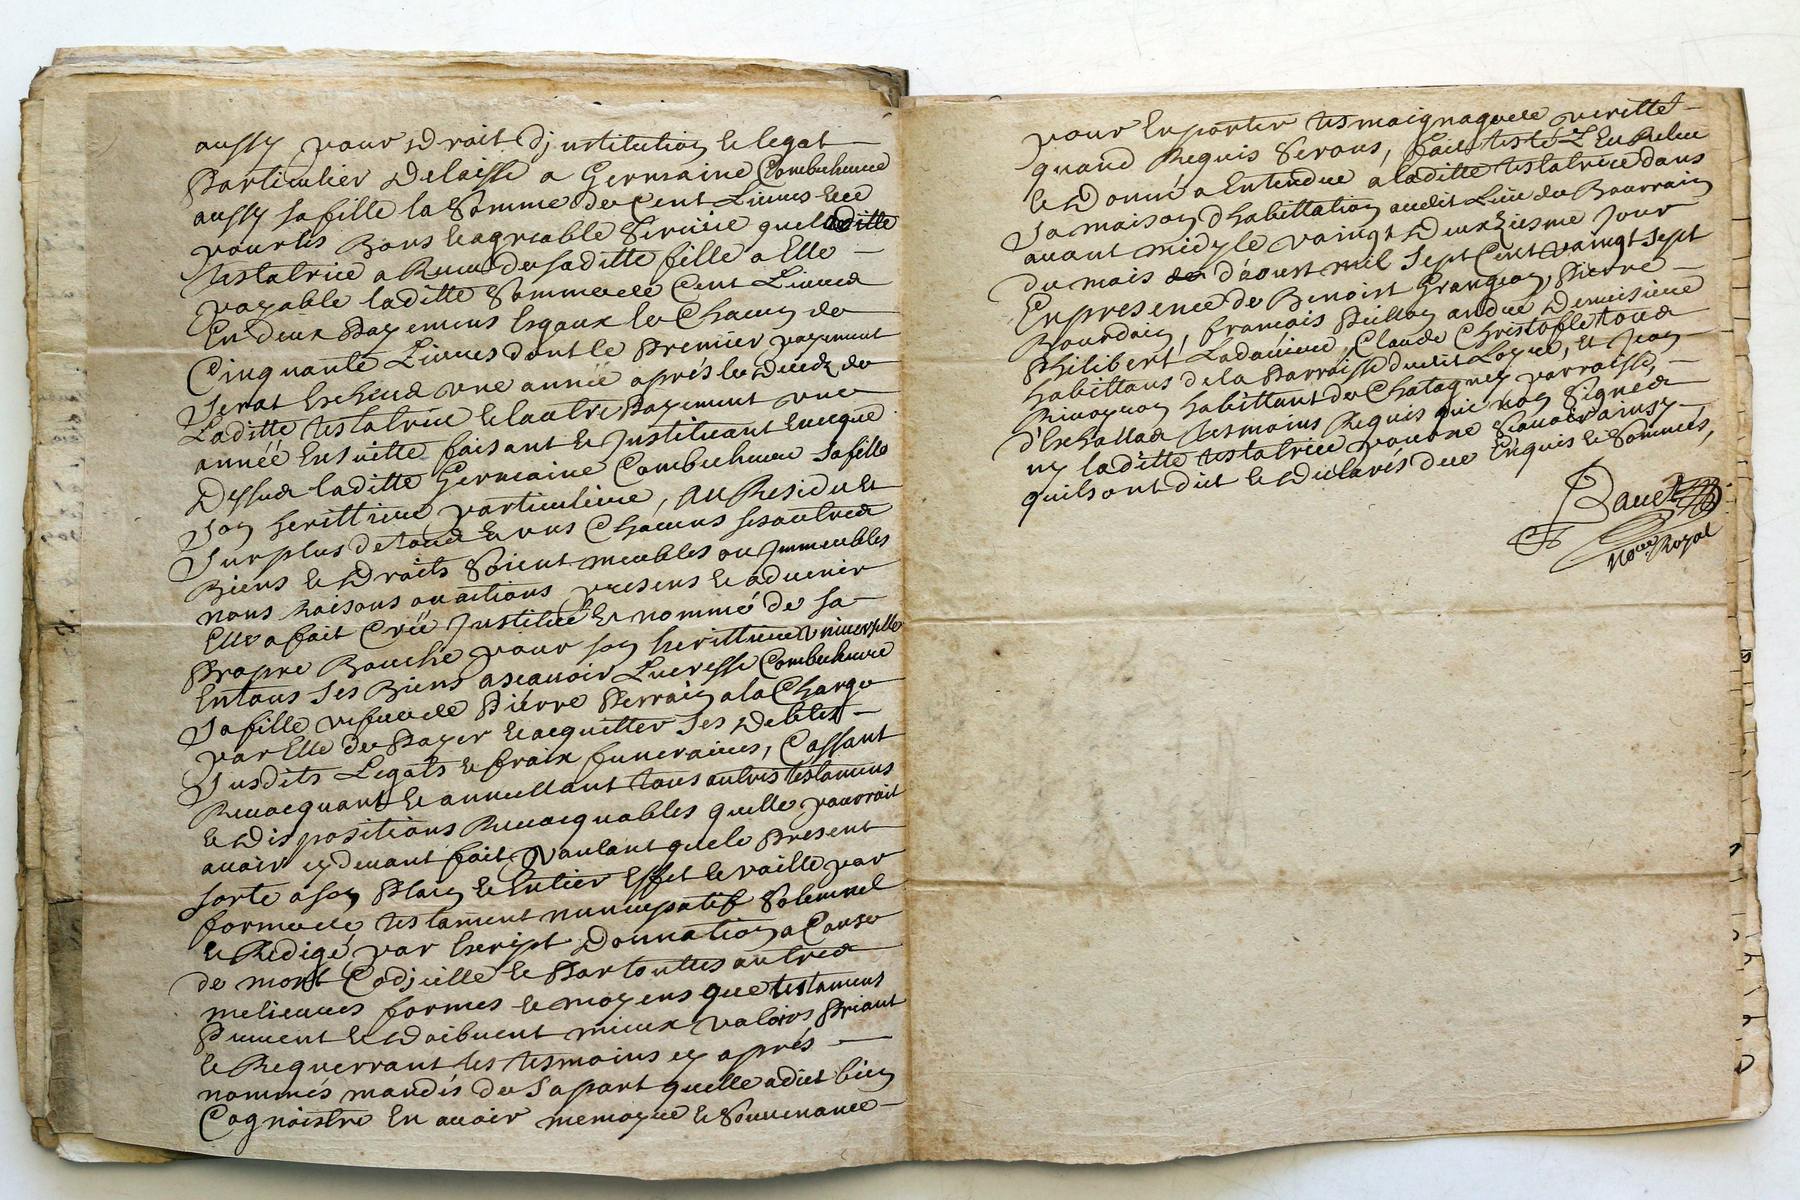 aussy pour droit dinstitution & legat
Particulier delaisse a Germaine Combechaure
aussy sa fille la somme de Cent Livres &
pour les Bons & agreable Service que laditte
testatrice a Receu de saditte fille a Elle
payable laditte Somme de Cent Livres
En deux Payemens Esgaux & Chacun de
Cinquante Livres dont le Premier payement
Serat Escheu une année aprés le deceds de
Laditte testatrice & lautre Payement une
année Ensuitte faisant & Instituant
Dessus laditte Germaine Combechaure sa fille
Son herittiere particuliere, Au Residu Et
Surplus de tous & uns Chacuns ses autres
Biens & Droits Soient meubles ou Immeubles
noms Raisons ou actions presens & advenir
Elle a fait Créé Institué & nommé de sa
Propre Bouche pour son herittiere universelle
En tous Ses Biens ascauoir Lucresse Combechaure
Sa fille vefue de Pierre Perrain a la Charge
par Elle de Payer & acquitter Ses debtes
Susdits Legats & fraix funeraires, Cassant
Reuocquant & annullant tous autres testamens
& Dispositions Reuocquables quelle pourroit
auoir cy deuant fait, Voulant que le Present
Sorte a son Plain & Entier Effet & vaille par
forme de testament nuncupatif Solemnel
& Redigé par Escript, Donnation a Cause
de mort Codicille & Par touttes autres
melieures formes & moyens que testamens
Peuuent & Doibuent mieux Valoirs Priant
& Requerrant les tesmoins cy aprés
nommés mandés de Sa part quelle a dict bien
Cognoistre En auoir memoyre & Souuenance
pour En porter tesmoignage de veritté
quand Requis Serons, fait testé Leu Releu
& Donné a Entendre a laditte testatrice dans
Sa maison dhabittation audit Lieu du Bourrain
auant midy le vaingt Deuxziesme Jour
du mois d'aoust mil Sept Cent vaingt sept
En presence de Benoist Grangeon, Pierre
Bourdain, francois Peillon andré Demeisiere
Philibert Ladauiere, Claude Christofle tous
habittans de la Parroisse dudit Loyre, Et Jean
habittant de Chatagney parroisse
d'Eschallas tesmoins Requis qui nont Signés
ny laditte testatrice pour ne Scauoir ainsy
quils ont dict & declarés de ce Enquis & Sommés,
No.re Royal